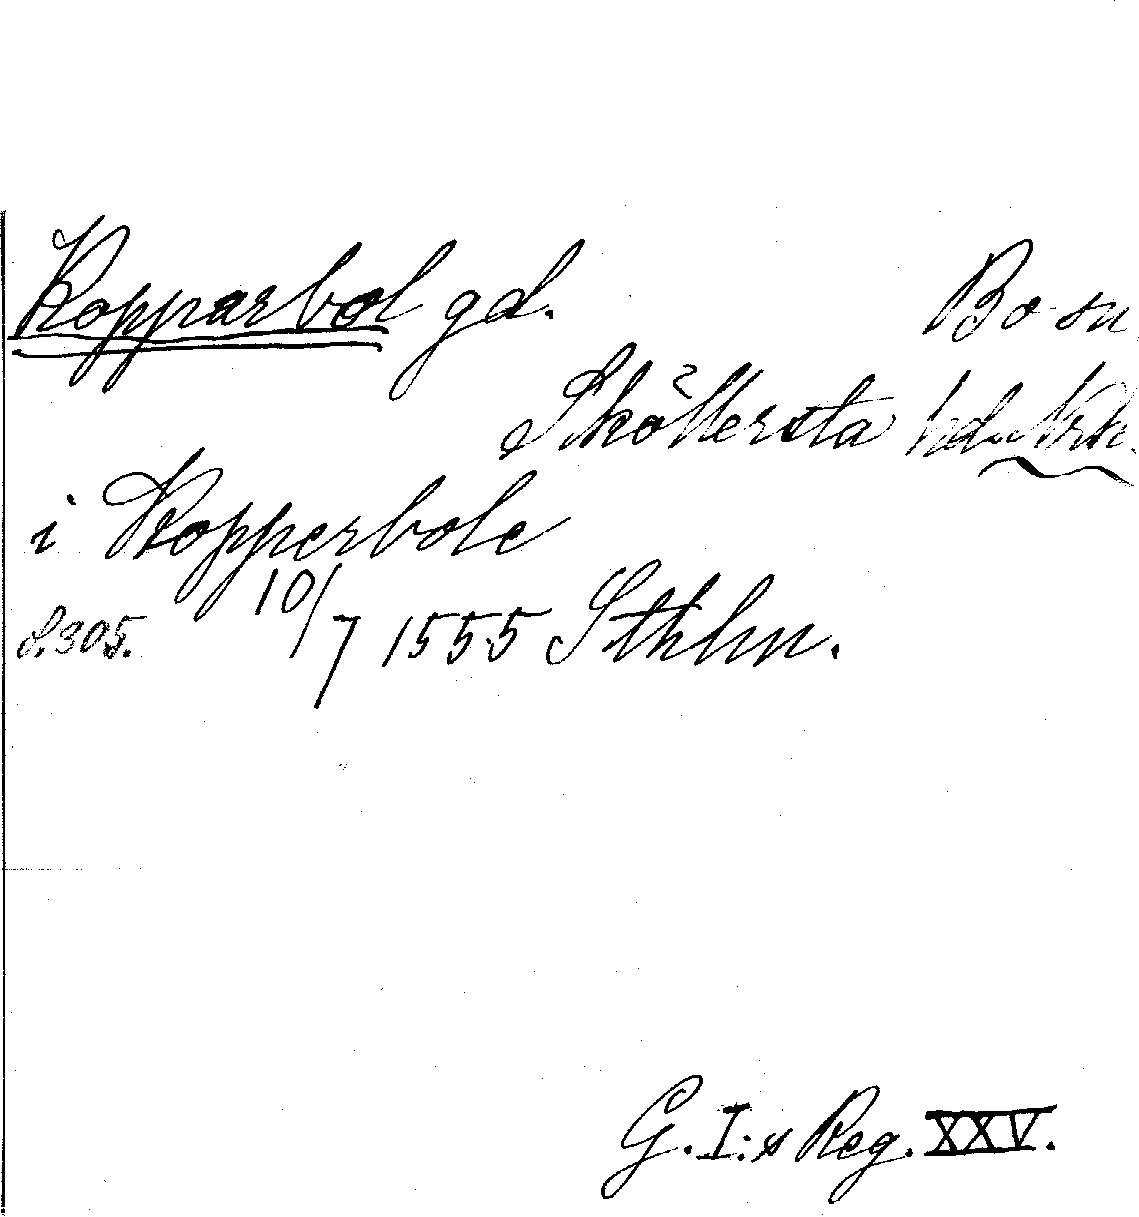 Kopparbol gd. Bo sn
Sköllersta hd. Nrk.
i Kopperbole
s. 305. 10/7 1555 Sthlm.
G. I:s Reg. XXV.